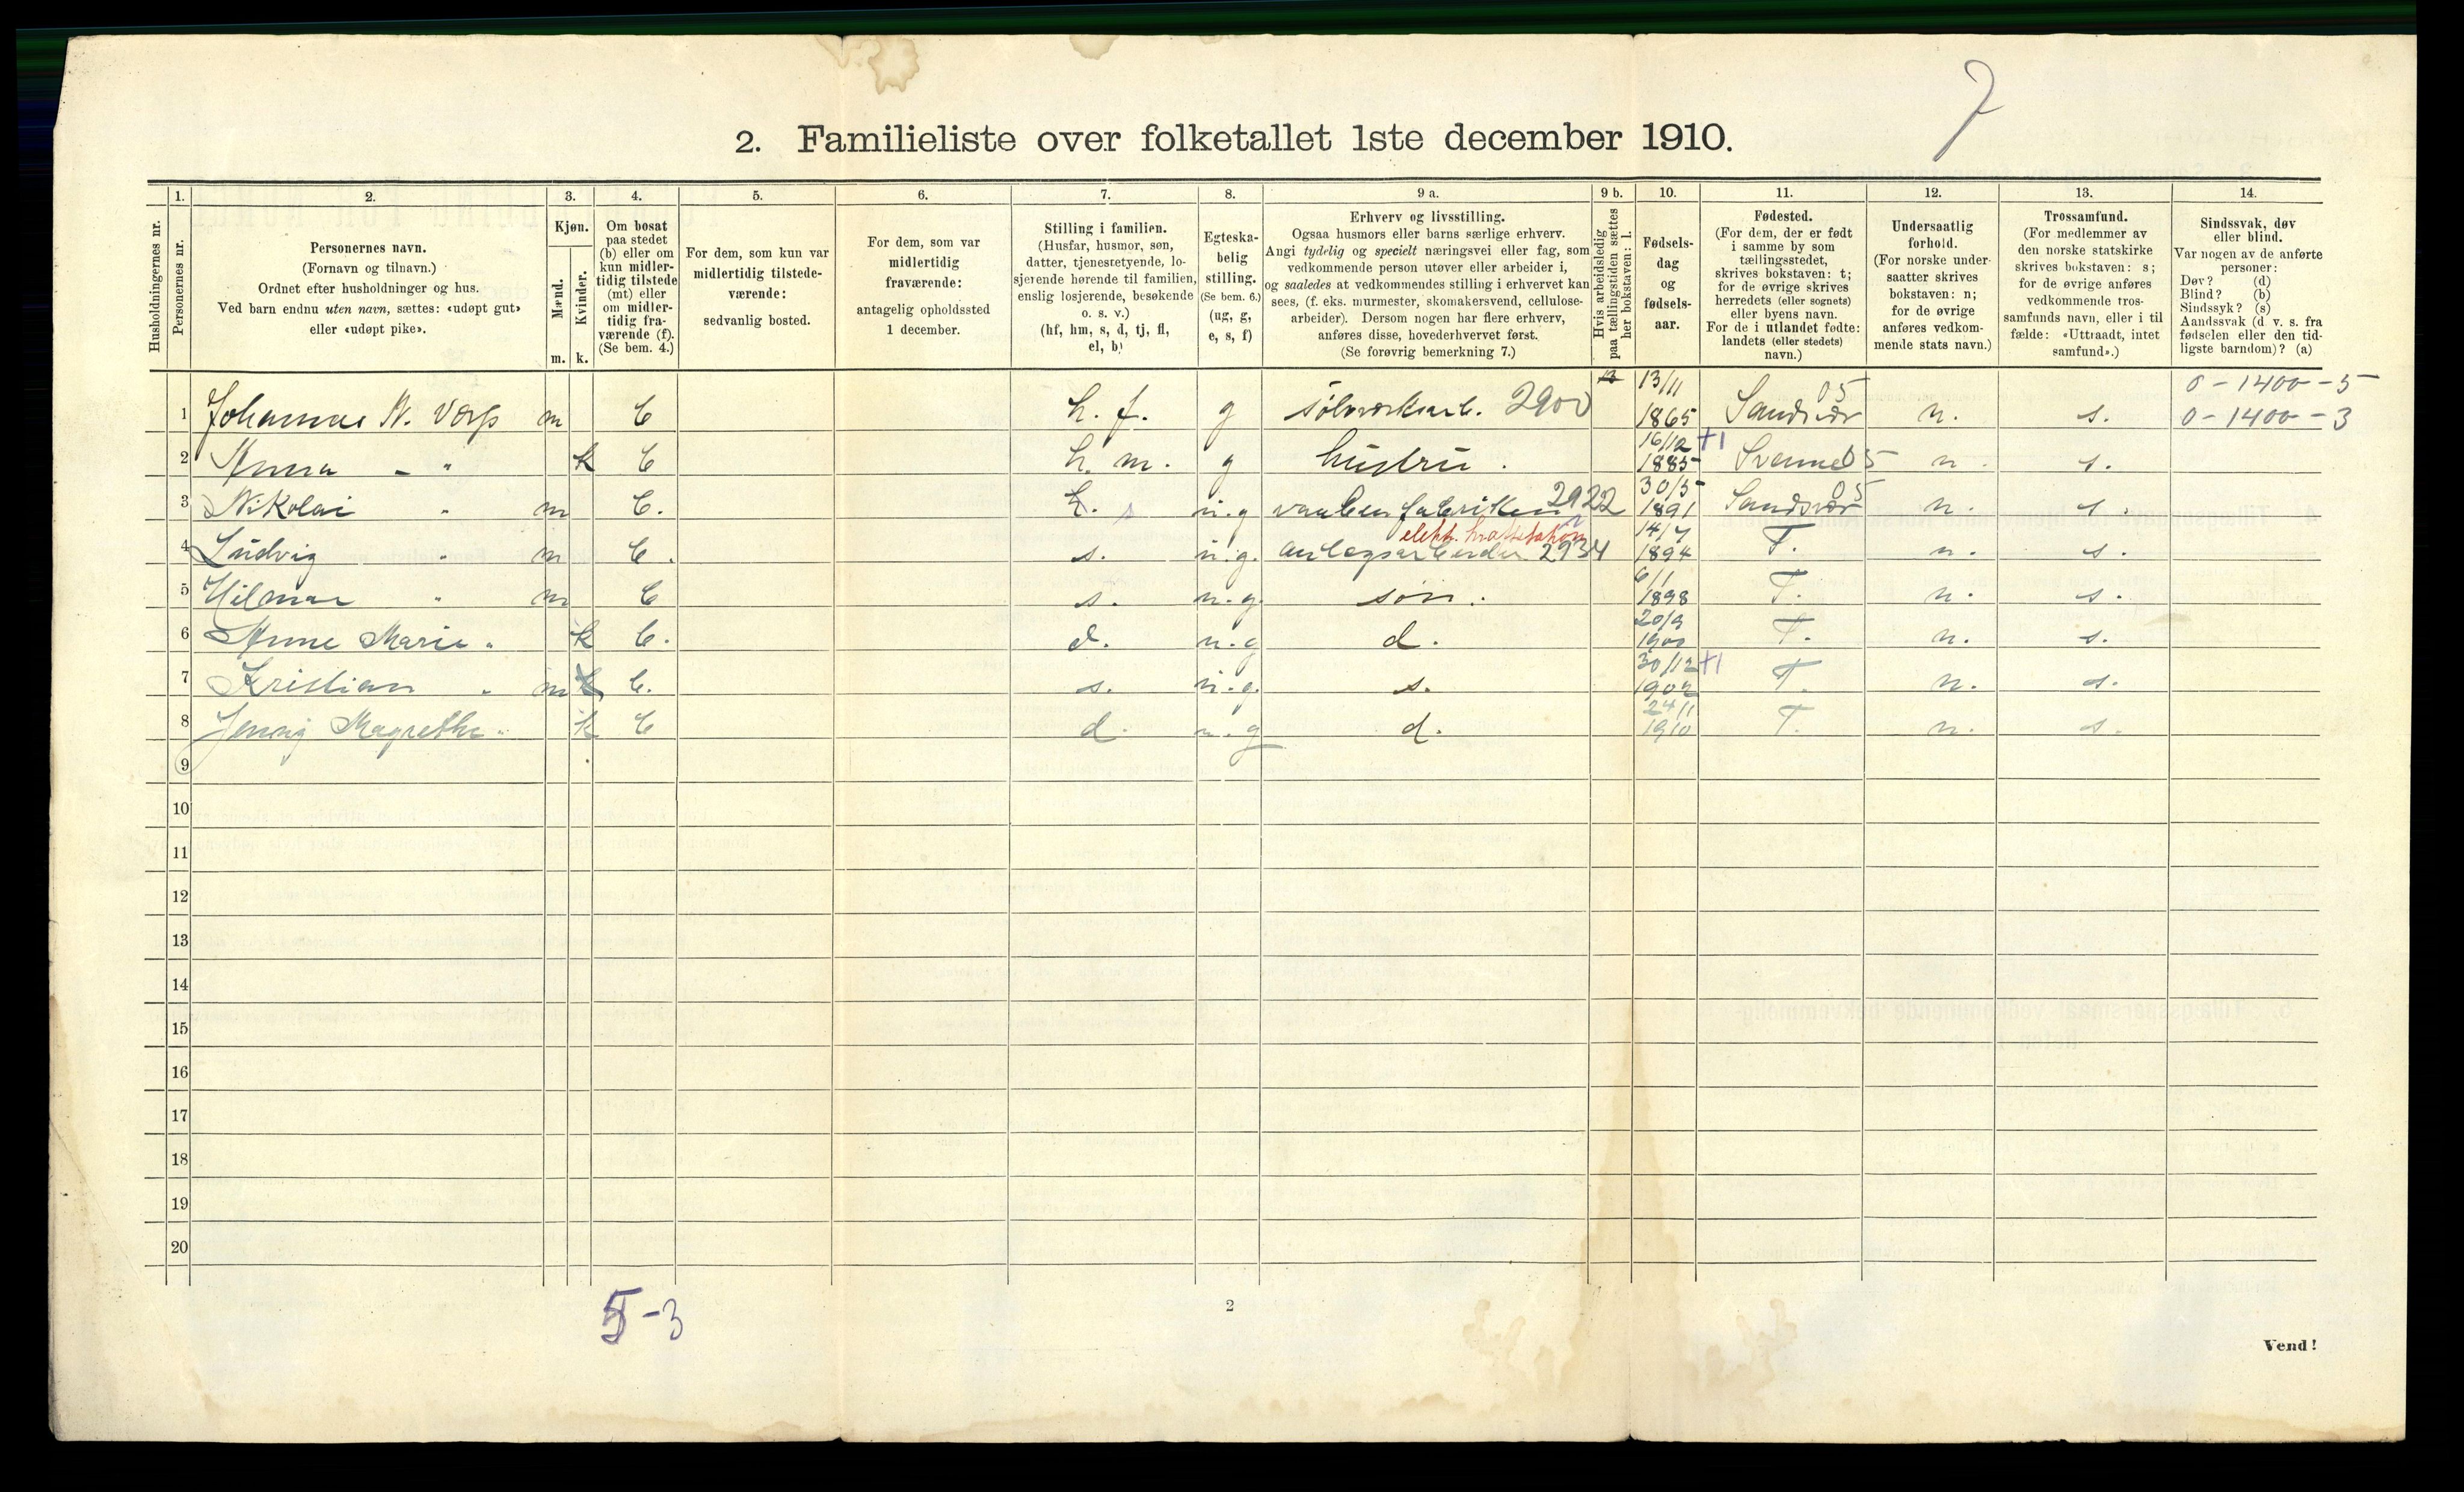 7
2. Familieliste over folketallet 1ste december 1910.
Husholdningernes nr.
1. Personernes nr.
2.
Personernes navn.
(Fornavn og tilnavn.)
Ordnet efter husholdninger og hus.
Ved barn endnu uten navn, sættes: «udøpt gut»
eller «udøpt pike».
3.
Kjøn.
Mænd. m.
Kvinder. k.
4.
Om bosat
paa stedet
(b) eller om
kun midler-
tidig tilstede
(mt) eller
om midler-
tidig fra-
værende (f).
(Se bem. 4.)
5.
For dem, som kun var
midlertidig tilstede-
værende:
sedvanlig bosted.
6.
For dem, som var
midlertidig
fraværende:
antagelig opholdssted
1 december.
7.
Stilling i familien.
(Husfar, husmor, søn,
datter, tjenestetyende, lo-
sjerende hørende til familien,
enslig losjerende, besøkende
o. s. v.)
(hf, hm, s, d, tj, fl,
el, b)
8.
Egteska-
belig
stilling.
(Se bem. 6.)
(ug, g,
e, s, f)
9 a.
Erhverv og livsstilling.
Ogsaa husmors eller barns særlige erhverv.
Angi tydelig og specielt næringsvei eller fag, som
vedkommende person utøver eller arbeider i,
og saaledes at vedkommendes stilling i erhvervet kan
sees, (f. eks. murmester, skomakersvend, cellulose-
arbeider). Dersom nogen har flere erhverv,
anføres disse, hovederhvervet først.
(Se forøvrig bemerkning 7.)
9 b.
Hvis arbeidsledig
paa tællingstiden sættes
her bokstaven: l.
10.
Fødsels-
dag
og
fødsels-
aar.
11.
Fødested.
(For dem, der er født
i samme by som
tællingsstedet,
skrives bokstaven: t;
for de øvrige skrives
herredets (eller sognets)
eller byens navn.
For de i utlandet fødte:
landets (eller stedets)
navn.)
12.
Undersaatlig
forhold.
(For norske under-
saatter skrives
bokstaven: n;
for de øvrige
anføres vedkom-
mende stats navn.)
13.
Trossamfund.
(For medlemmer av
den norske statskirke
skrives bokstaven: s;
for de øvrige anføres
vedkommende tros-
samfunds navn, eller i til
fælde: «Uttraadt, intet
samfund».)
14.
Sindssvak, døv
eller blind.
Var nogen av de anførte
personer:
Døv? (d)
Blind? (b)
Sindssyk? (s)
Aandssvak (d. v. s. fra
fødselen eller den tid-
ligste barndom)? (a)
0 - 1400 - 5
1 Johannes N. m b h. f. g sølvverksarb. 2900 13/11 1865 Sandsvær 05 n. s. 0 - 1400 - 3
2 Anna - " k b h. m. g hustru. 16/12 1885 +1 05 n. s.
3 Nikolai " m b. s u.g vaabenfabriken 2922 30/5 1891 Sandsvær 05 n. s.
elektr. kraftstation
4 Ludvig " m b. s. u.g. anlegsarbeider 2934 14/7 1894 T. n. s.
5 Hilmar " m b s. u.g. søn. 6/1 1898 T. n. s.
6 Anne Marie " k b. d. u.g d. 20/9 1900 T. n. s.
7 Kristian " m b. s. u.g. s. 30/12 +1 T. n. s.
8 Magrethe " k b d. u.g d. 24/11 1910 T. n. s.
9
10
11
12
13
14
15
16
17
18
19
20
5-3
2
Vend!